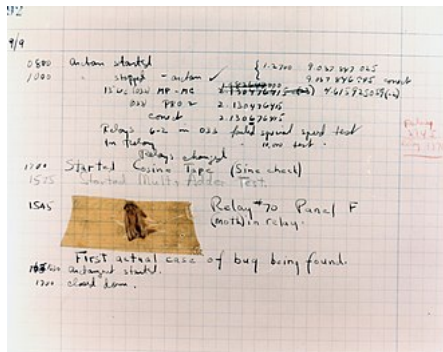 92
9/9
0800 Antan started
1000 " stopped - antan ✓ { 1.2700 9.037 847 025
9.037 846 995 correct
13" UC (032) MP-MC 2.130476415 (-3) 4.615925059(-2)
033 PRO 2 2.130476415
correct 2.130676415
Relays 6-2 in 033 failed special speed test
In relay " 10.000 test.
Relays changed
1700 Started Cosine Tape (Sine check)
1525 Started Mult+Adder Test.
1545 Relay #70 Panel F
(moth) in relay.
First actual case of bug being found.
1630 antangent started.
1700 closed down.